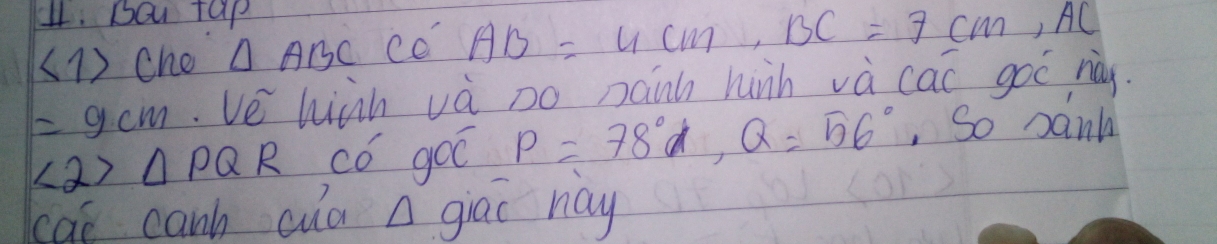 II. Bài tập
<1> Cho Δ ABC có AB = 4 cm, BC = 7 cm, AC
= 9cm. Vẽ hình và so sánh hình và các góc này.
<2> Δ PQR có góc P = 78°, Q = 56°. So sánh
các cạnh của Δ giác này